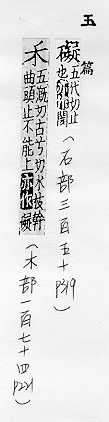 玉
篇
礙 五代切止
也亦作閡
（石部三百五十 P319）
禾 五溉切古兮切木枝幹
曲頭止不能上亦作礙
（禾部一百七十四 P221）